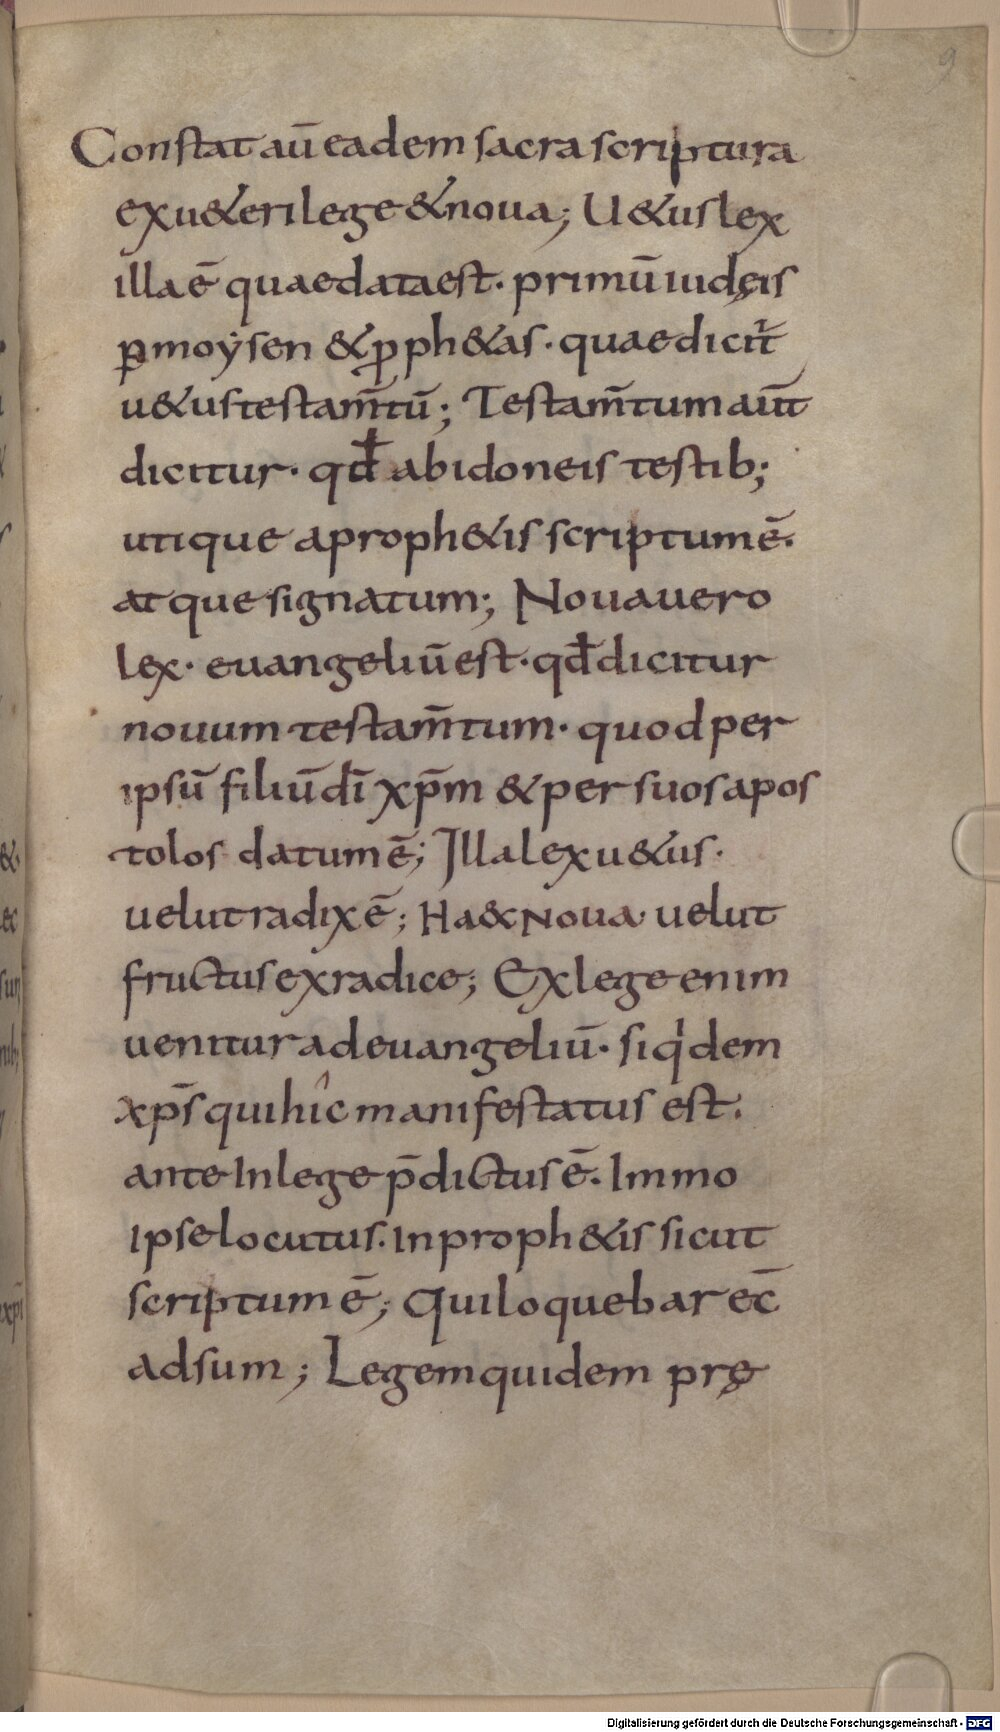 9
Constat aū eadem sacra scriptura
ex u&eri lege & noua; U&us lex
illa ē quae data est· primū iudęis
ꝑ moẏsen & ꝓph&as· quae dicit̄
u&us testam̄tū; Testam̄tum aut̄
dicitur· qđ ab idoneis testib;
utique a proph&is scriptum ē·
atque signatum; Noua uero
lex· euangeliū est· qđ dicitur
nouum testam̄tum· quod per
ipsū filiū dī xp̄m & per suos apos
tolos datum ē; Illa lex u&us·
uelut radix ē; Haec noua uelut
fructus ex radice; Ex lege enim
uenitur ad euangeliū· siqͥdem
xp̄s qui hîc manifestatus est·
ante In lege p̄dictus ē· Immo
Ipse locutus· In proph&is sicut
scriptum ē; Qui loquebar ec̄
adsum; Legem quidem prę
Digitalisierung gefördert durch die Deutsche Forschungsgemeinschaft - DFG